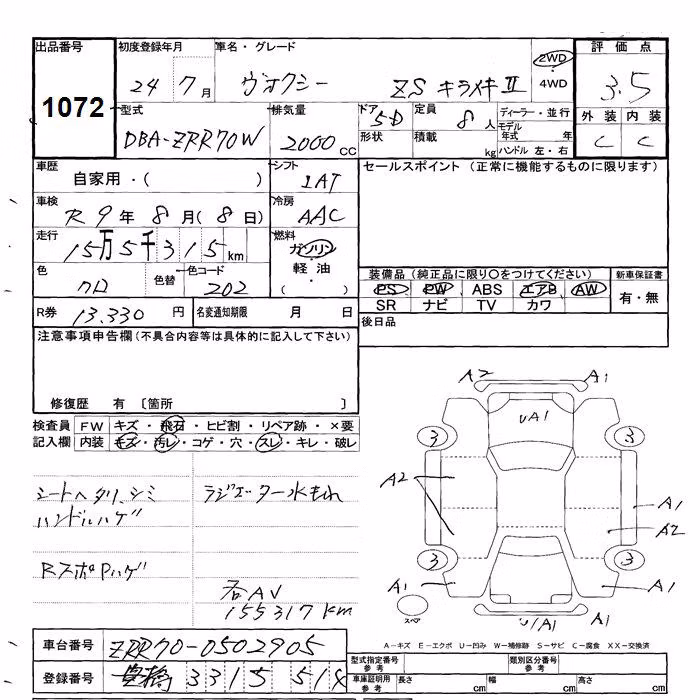 出品番号 初度登録年月 車名・グレード 2WD 評価点
1072 24 7月 ヴォクシー ZS キラメキⅡ 4WD 3.5
型式 排気量 ドア 定員 ディーラー・並行 外装 内装
DBA-ZRR70W 2000cc 5D 8人 モデル年式 年 C C
形状 積載 kg ハンドル 左・右
車歴 シフト セールスポイント (正常に機能するものに限ります)
自家用・( ) IAT
車検 冷房
R9年8月(8日) AAC
走行 燃料
15万5千315km ガソリン
軽油
色 色替 色コード ・( ) 装備品 (純品に限り○をつけてください) 新車保証書
クロ 202 PS PW ABS エアB AW 有・無
SR ナビ TV カワ
R券 13.330円 名変通知期限 月 日 後日品
注意事項申告欄 (不具合内容等は具体的に記入して下さい)
修復歴 有 〔箇所 〕
検査員 FW キズ・飛石・ヒビ割・リペア跡・×要
記入欄 内装 キズ・汚レ・コゲ・穴・スレ・キレ・破レ
シートヘタリ、シミ ラジエター水もれ
ハンドルハゲ
RスポPハゲ
右AV
155317km
A2 A1
UA1
3 3
A2 A1
A2
3 3
A1 A1
スペア U/A1
A-キズ E-エクボ U-凹み W-補修跡 S-サビ C-腐食 XX-交換済
車台番号 ZRR70-0502905 型式指定番号 参考 類別区分番号 参考
登録番号 豊橋 3315 518 車庫証明用 参考 長さ cm 幅 cm 高さ cm